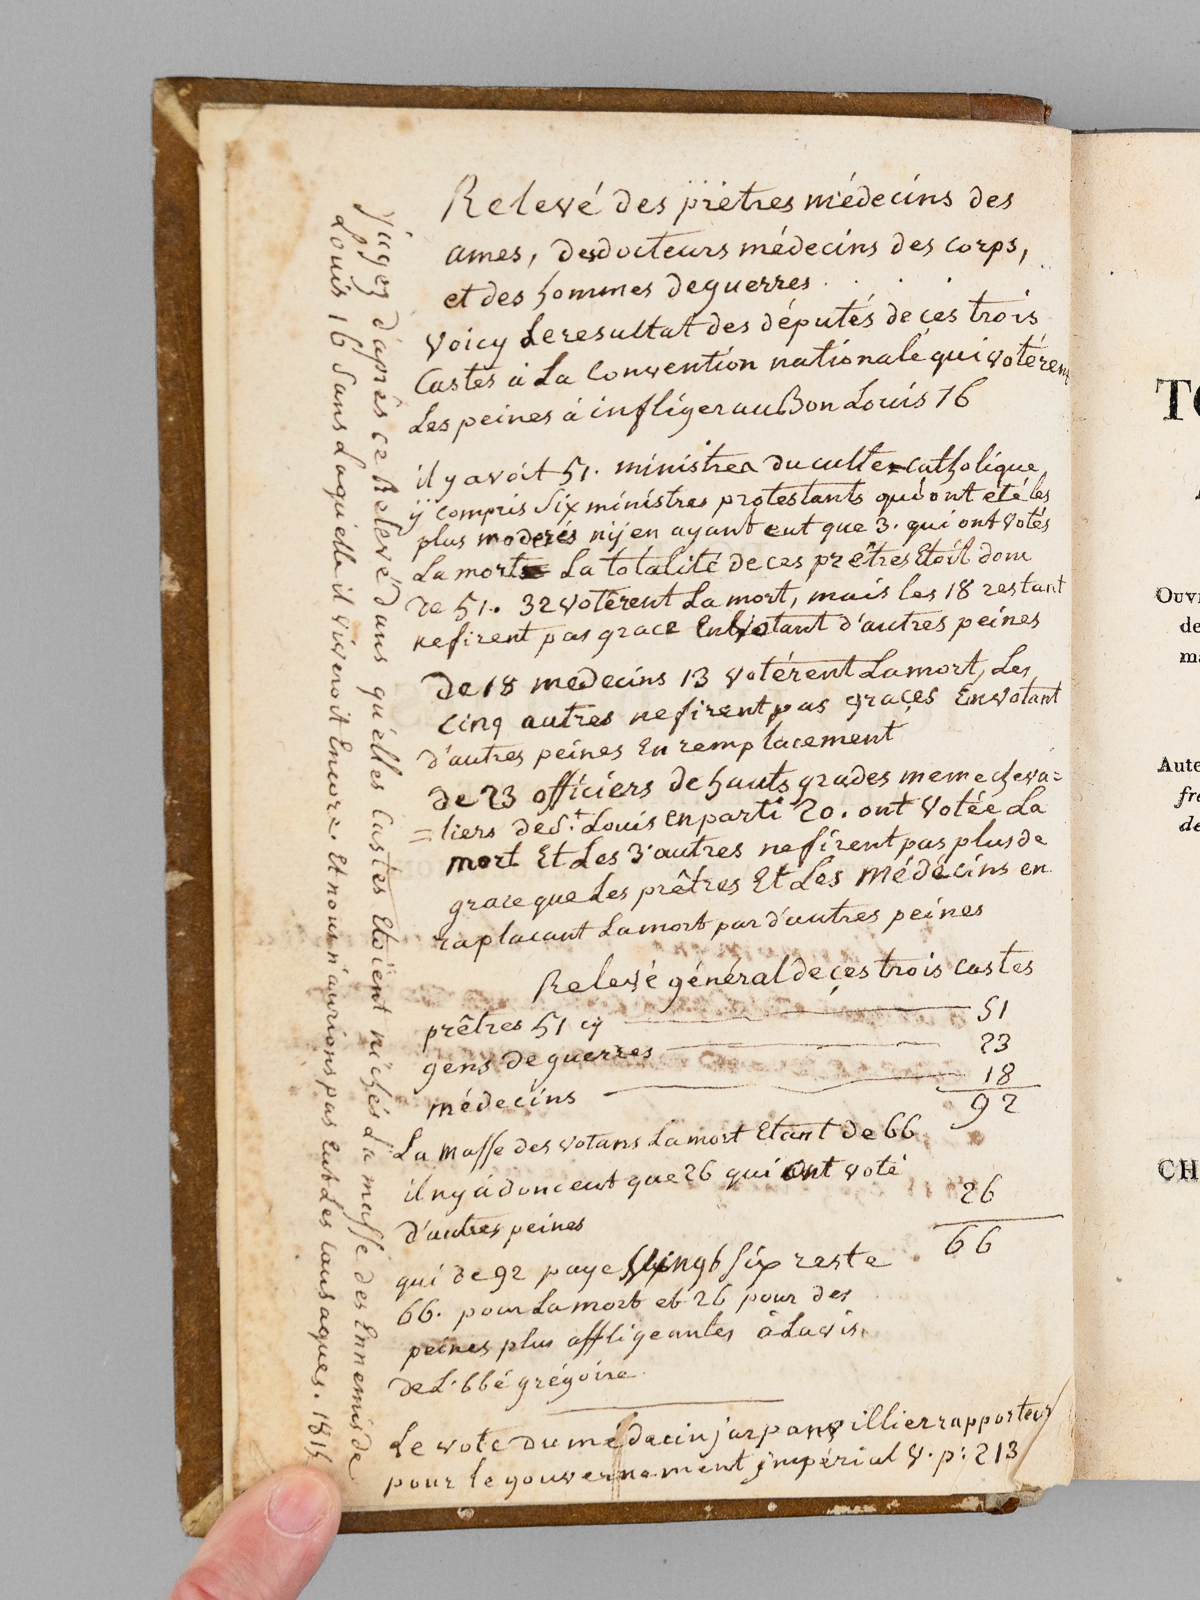 Relevé des prêtres médecins des
ames, des docteurs médecins des corps,
et des hommes de guerres
Voicy Le resultat des députés de ces trois
Castes à La Convention nationalé qui votérent
Les peines à infliger au Bon Louis 16
il y avoit 51. ministres du culte catholique,
ÿ compris Six ministres protestants qui ont été les
plus moderés n'ÿ en ayant eut que 3. qui ont votés
La mort La totalité de ces prêtres Etoit donc
de 51. 32 votérent La mort, mais les 18 restant
ne firent pas grace En votant d'autres peines
De 18 medecins 13 votérent La mort, Les
cinq autres ne firent pas graces En votant
d'autres peines En remplacement
de 23 officiers de hauts grades meme cheva=
=liers de St. Louis en parti 20. ont votée La
mort Et Les 3 autres ne firent pas plus de
grace que Les prêtres Et Les Médécins en
raplacant La mort par d'autres peines
Relevé général de ces trois castes
prêtres 51 cy 51
gens de guerres 23
médecins 18
92
La masse des votans La mort Etant de 66
il ny à donc eut que 26 qui ont voté
d'autres peines 26
66
qui de 92 paye six reste
66. pour La mort et 26 pour des
peines plus affligeantes à L'avis
de L'bbé grégoire
Le vote du médecin jarpanvillier rapporteur
pour le gouvernement jmpérial V. p: 213
Jugez d'après ce Relevé dans qu'elles Castes Etoient nichés La masse des Ennemis de
Louis 16 Sans Laquelle il vivroit Encore. Et nous n'aurions pas Eut Les cansaques. 1815